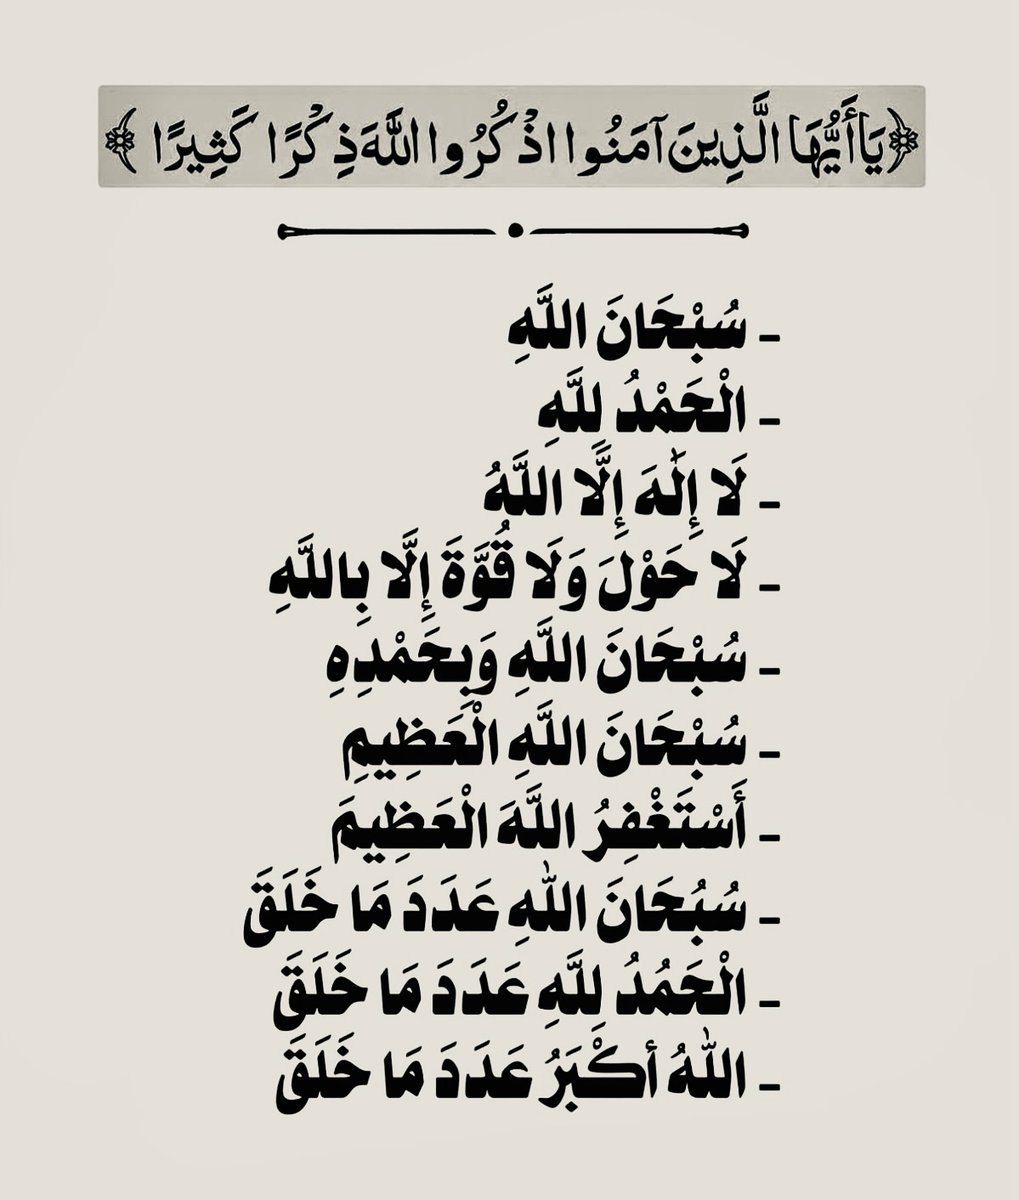 ﴿يَا أَيُّهَا الَّذِينَ آمَنُوا اذْكُرُوا اللَّهَ ذِكْرًا كَثِيرًا﴾
- سُبْحَانَ اللَّهِ
- الْحَمْدُ لِلَّهِ
- لَا إِلَٰهَ إِلَّا اللَّهُ
- لَا حَوْلَ وَلَا قُوَّةَ إِلَّا بِاللَّهِ
- سُبْحَانَ اللَّهِ وَبِحَمْدِهِ
- سُبْحَانَ اللَّهِ الْعَظِيمِ
- أَسْتَغْفِرُ اللَّهَ الْعَظِيمَ
- سُبُحَانَ اللّٰهِ عَدَدَ مَا خَلَقَ
- الْحَمُدُ لِلَّهِ عَدَدَ مَا خَلَقَ
- اللّٰهُ أكْبَرُ عَدَدَ مَا خَلَقَ